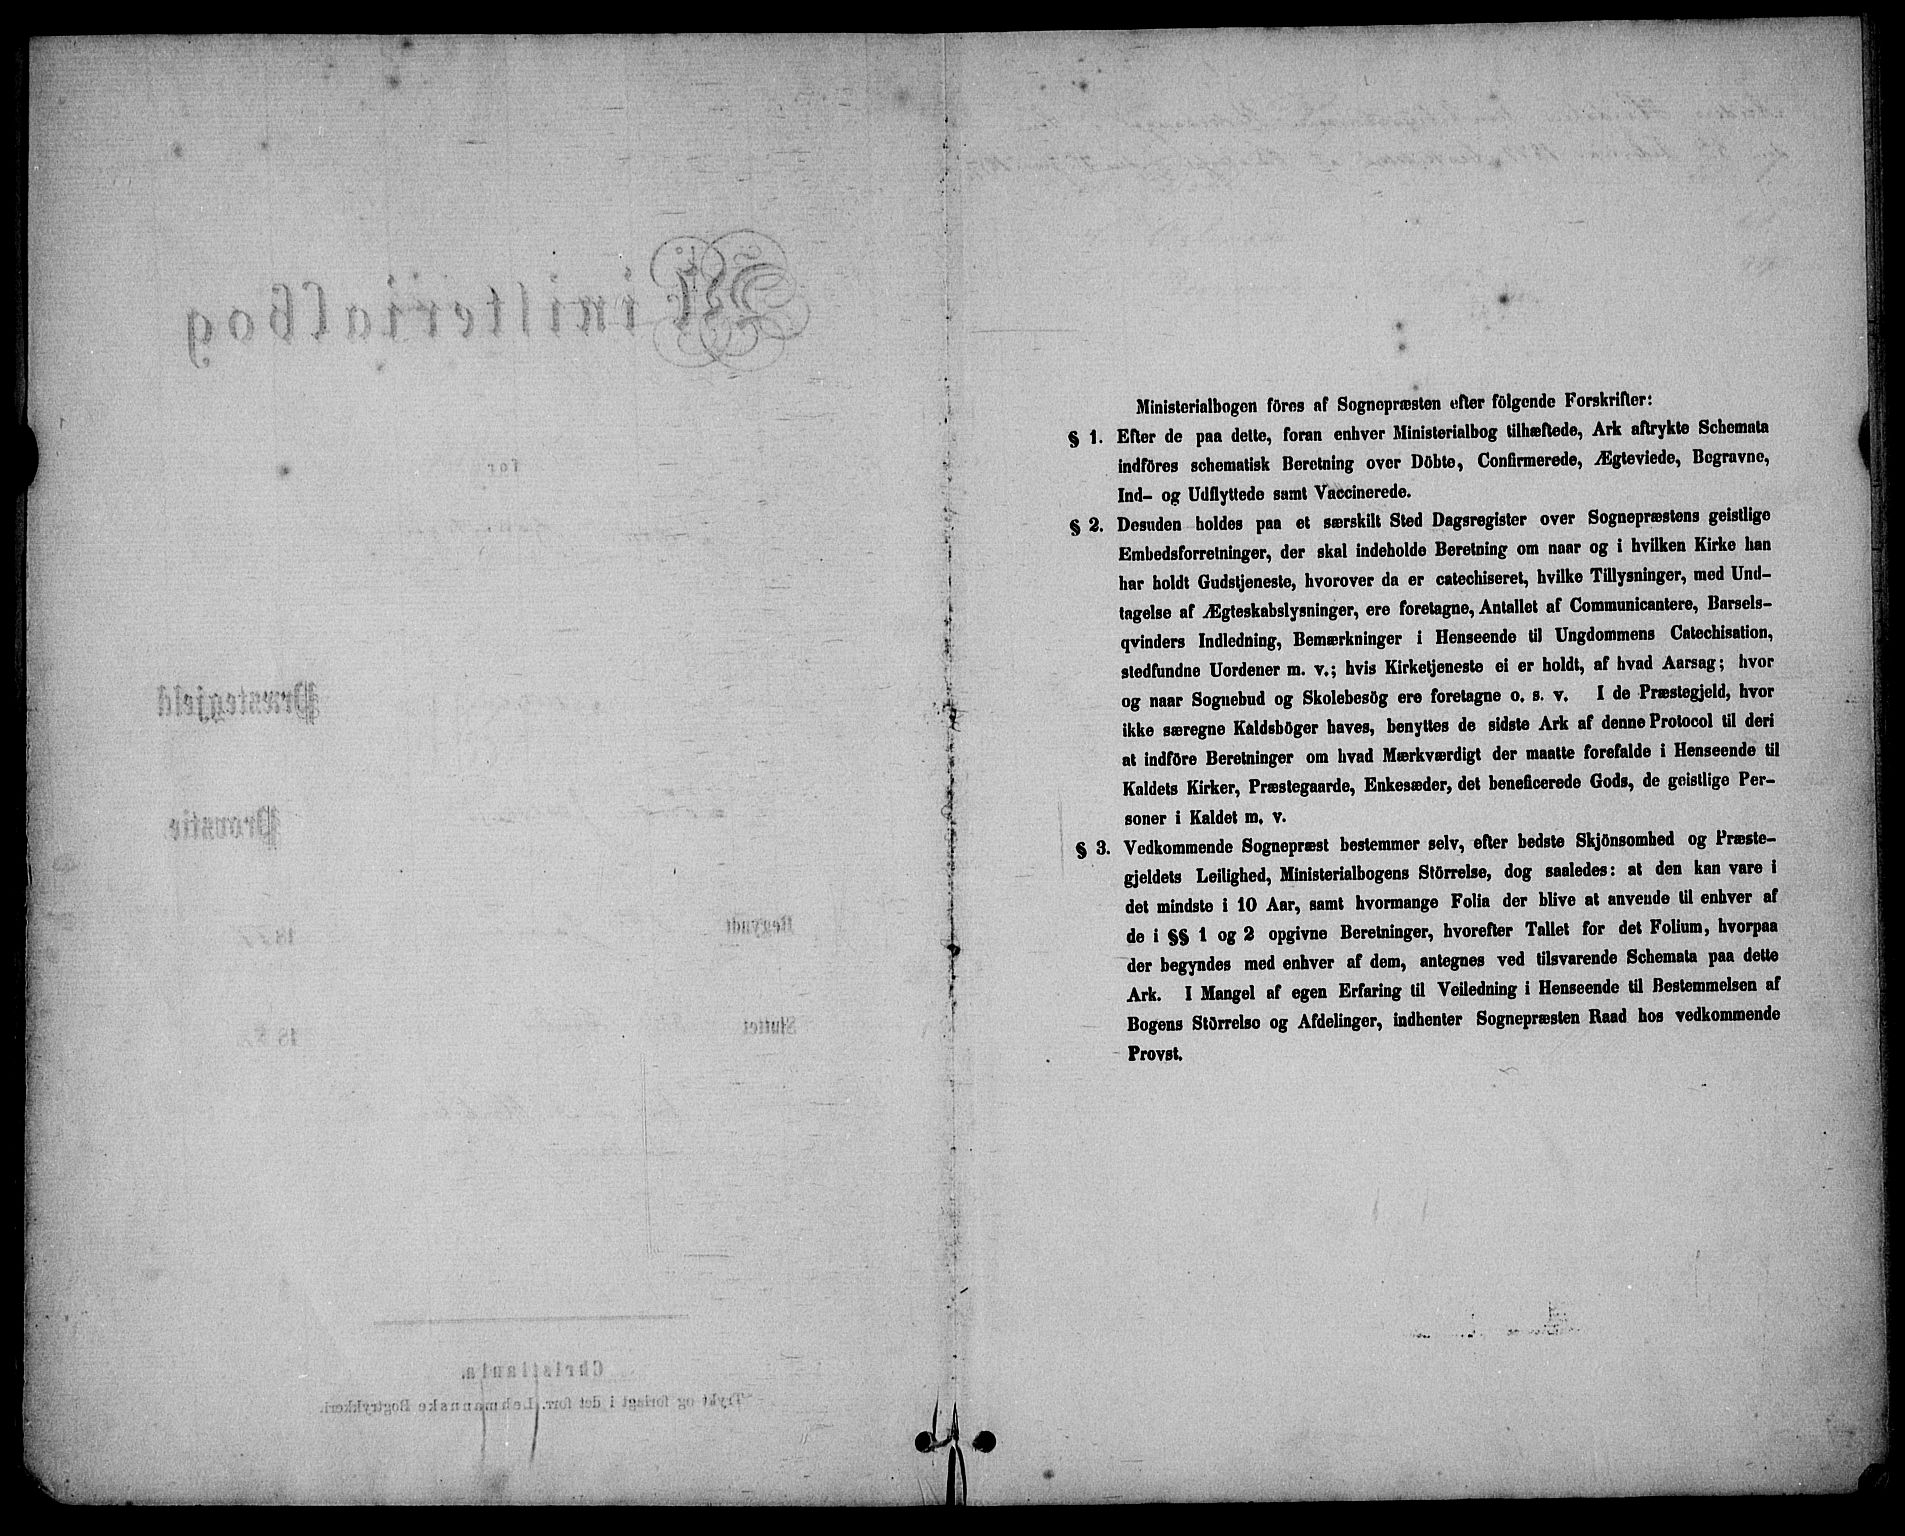 Ministerialbog
for
Præstegjeld
Provstie
Begyndt 18
Sluttet 18
Christiania.
Trykt og forlagt i det forr. Lehmannske Bogtrykkeri.
Ministerialbogen föres af Sognepræsten efter fölgende Forskrifter:
§ 1. Efter de paa dette, foran enhver Ministerialbog tilhæftede, Ark aftrykte Schemata
indföres schematisk Beretning over Döbte, Confirmerede, Ægteviede, Begravne,
Ind- og Udflyttede samt Vaccinerede.
§ 2. Desuden holdes paa et særskilt Sted Dagsregister over Sognepræstens geistlige
Embedsforretninger, der skal indeholde Beretning om naar og i hvilken Kirke han
har holdt Gudstjeneste, hvorover da er catechiseret, hvilke Tillysninger, med Und-
tagelse af Ægteskabslysninger, ere foretagne, Antallet af Communicantere, Barsels-
qvinders Indledning, Bemærkninger i Henseende til Ungdommens Catechisation,
stedfundne Uordener m. v.; hvis Kirketjeneste ei er holdt, af hvad Aarsag; hvor
og naar Sognebud og Skolebesög ere foretagne o. s. v. I de Præstegjeld, hvor
ikke særegne Kaldsböger haves, benyttes de sidste Ark af denne Protocol til deri
at indföre Beretninger om hvad Mærkværdigt der maatte forefalde i Henseende til
Kaldets Kirker, Præstegaarde, Enkesæder, det beneficerede Gods, de geistlige Per-
soner i Kaldet m. v.
§ 3. Vedkommende Sognepræst bestemmer selv, efter bedste Skjönsomhed og Præste-
gjeldets Leilighed, Ministerialbogens Störrelse, dog saaledes: at den kan vare i
det mindste i 10 Aar, samt hvormange Folia der blive at anvende til enhver af
de i §§ 1 og 2 opgivne Beretninger, hvorefter Tallet for det Folium, hvorpaa
der begyndes med enhver af dem, antegnes ved tilsvarende Schemata paa dette
Ark. I Mangel af egen Erfaring til Veiledning i Henseende til Bestemmelsen af
Bogens Störrelse og Afdelinger, indhenter Sognepræsten Raad hos vedkommende
Provst.